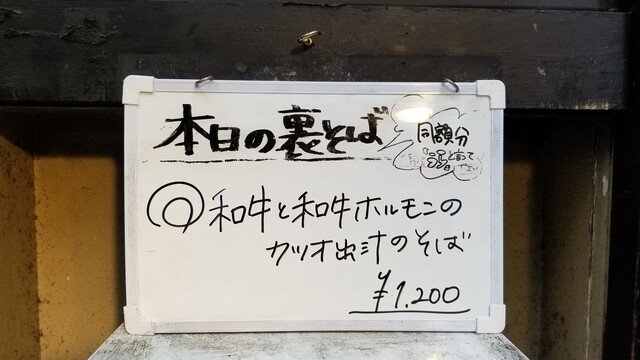 本日の裏そば
同額分
と言って
◎和牛と和牛ホルモンの
カツオ出汁のそば
¥1.200